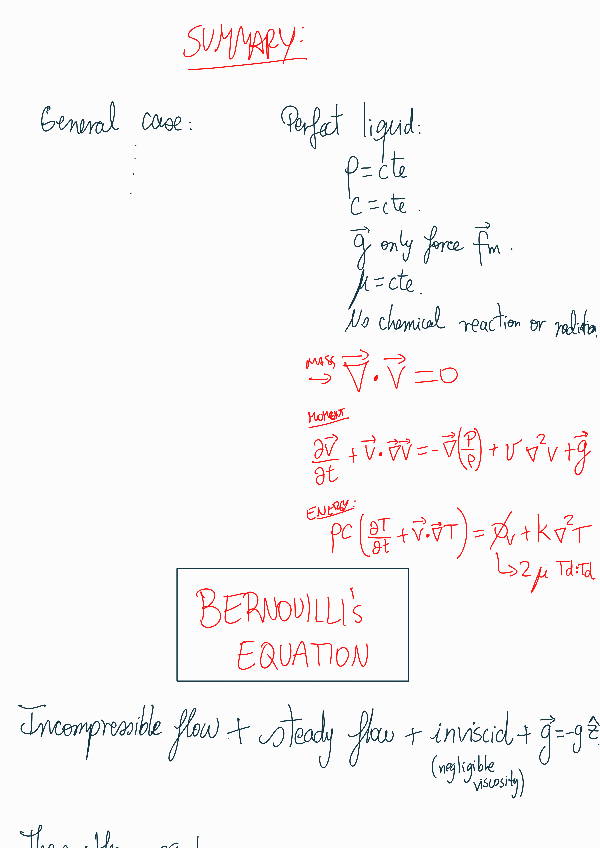 SUMMARY:
General case:
Perfect liquid:
ρ = cte
c = cte.
g⃗ only force f⃗m.
μ = cte.
No chemical reaction or
MASS
→ ∇⃗ · v⃗ = 0
MOMENT
∂v⃗/∂t + v⃗ · ∇⃗v⃗ = -∇⃗(P/ρ) + ν ∇²v + g⃗
ENERGY:
ρc (∂T/∂t + v⃗ · ∇⃗T) = φv + k ∇²T
↳ 2 μ Td:Td
BERNOUILLI's
EQUATION
Incompressible flow + steady flow + inviscid + g⃗ = -g ẑ
(negligible
viscosity)